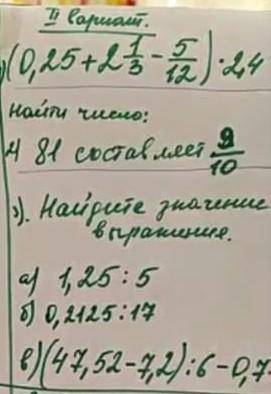 II вариант.
(0,25 + 2 1/3 - 5/12) · 2,4
Найти число:
81 составляет 9/10
3). Найдите значение
выражение.
а) 1,25 : 5
б) 0,2125 : 17
в) (47,52 - 7,2) : 6 - 0,7